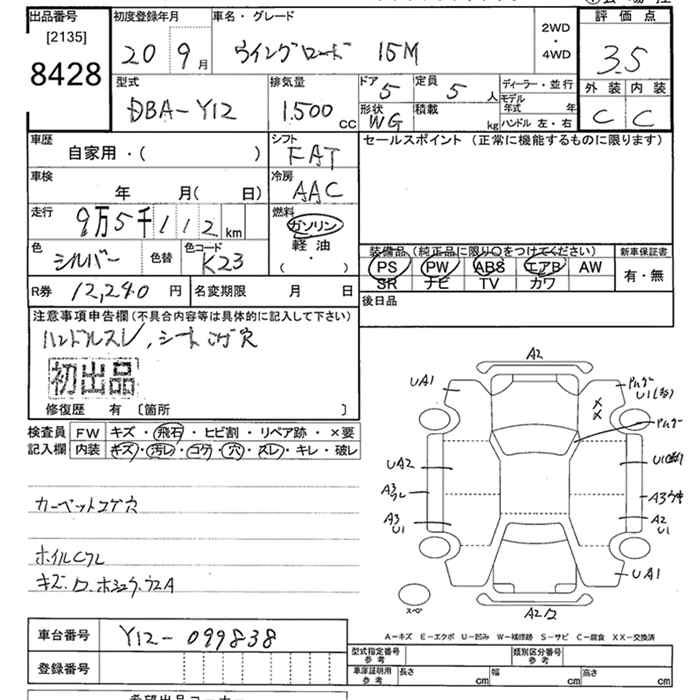 出品番号
[2135]
8428
初度登録年月
20 9月
車名・グレード
ウイングロード 15M
2WD
・
4WD
評価点
3.5
外装 内装
C C
型式
DBA-Y12
排気量
1.500 cc
ドア 5
定員 5 人
形状 WG
積載 kg
ディーラー・並行
モデル年式 年
ハンドル 左・右
車歴
自家用・( )
シフト
FAT
車検
年 月( 日)
冷房
AAC
走行
9万5千112 km
燃料
ガソリン
軽油
( ・ )
色
シルバー
色替
色コード
K23
セールスポイント (正常に機能するものに限ります)
装備品(純正品に限り〇をつけてください)
新車保証書
PS PW ABS エアB AW
SR ナビ TV カワ
有・無
R券 12,240 円
名変期限 月 日
後日品
注意事項申告欄(不具合内容等は具体的に記入して下さい)
ハンドルスレ,シートコゲ穴
初出品
修復歴 有〔箇所 〕
検査員
記入欄
FW キズ・飛石・ヒビ割・リペア跡・×要
内装 キズ・汚レ・コゲ・穴・スレ・キレ・破レ
カーペットコゲ穴
ホイルCスレ
A2
UA1
U1
UA2
A3
スレ
A3
U1
A3ウキ
A2
U1
UA1
スペ
A2
A-キズ E-エクボ U-凹み W-補修跡 S-サビ C-腐食 XX-交換済
車台番号
Y12-099838
登録番号
型式指定番号
参考
類別区分番号
参考
車庫証明用
参考
長さ cm
幅 cm
高さ cm